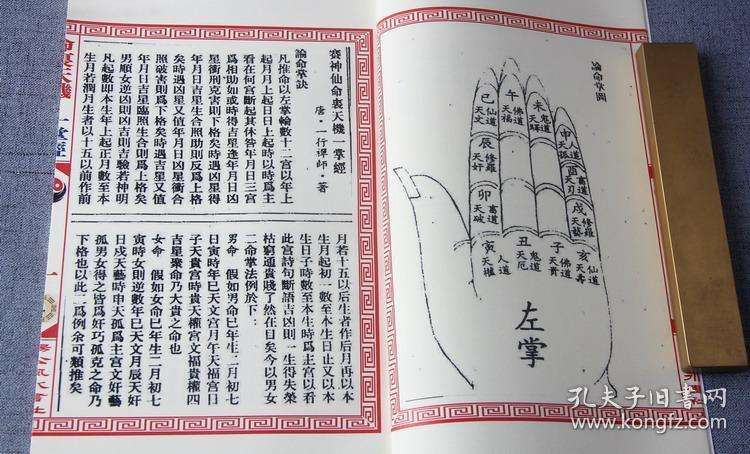 賽神仙命裏天機一掌經
唐·一行禪師·著
論命掌訣
凡推命以左掌輪數十二宮以年上
起月月上起日日上起時以時爲主
看在何宮斷起其休咎年月日三宮
爲相助如或時得吉星逢年月日凶
星衝刑克害則下格矣時遇凶星得
年月日吉星生合照助則反爲上格
矣時遇凶星又值年月日凶星衝合
照破害則爲下格矣時遇吉星又值
年月日吉星臨照生合則爲上格矣
男順女逆凶則凶吉則吉驗若神明
凡起數即本生年上起正月數至本
生月若潤月生者以十五以前作前
月若十五以后生者作后月再以本
生月起初一數至本生日止又以本
生日子時數至本生時爲主宮以看
此宮詩句斷語吉凶則一生得失榮
枯窮通貴賤了然在目矣今以男女
二命掌法例於下:
男命 假如男命巳年生二月初七
日寅時年巳天文宮月午天福宮日
子天貴宮時貴天權宮文福貴權四
吉星聚命乃大貴之命也
女命 假如女命巳年生二月初七
寅時女則逆數年巳天文月辰天奸
日戌天藝時申天孤爲主宮文奸藝
孤男女得之皆爲奸巧孤克之命乃
下格也以此二爲例余可類推矣
一
論命掌圖
巳 仙道 天文
午 佛道 天福
未 鬼道 天驛
申 人道 天孤
辰 修羅 天奸
酉 畜道 天刃
卯 畜道 天破
戌 修羅 天藝
寅 人道 天權
丑 鬼道 天厄
子 佛道 天貴
亥 仙道 天壽
左掌
孔夫子旧书网
www.kongfz.com